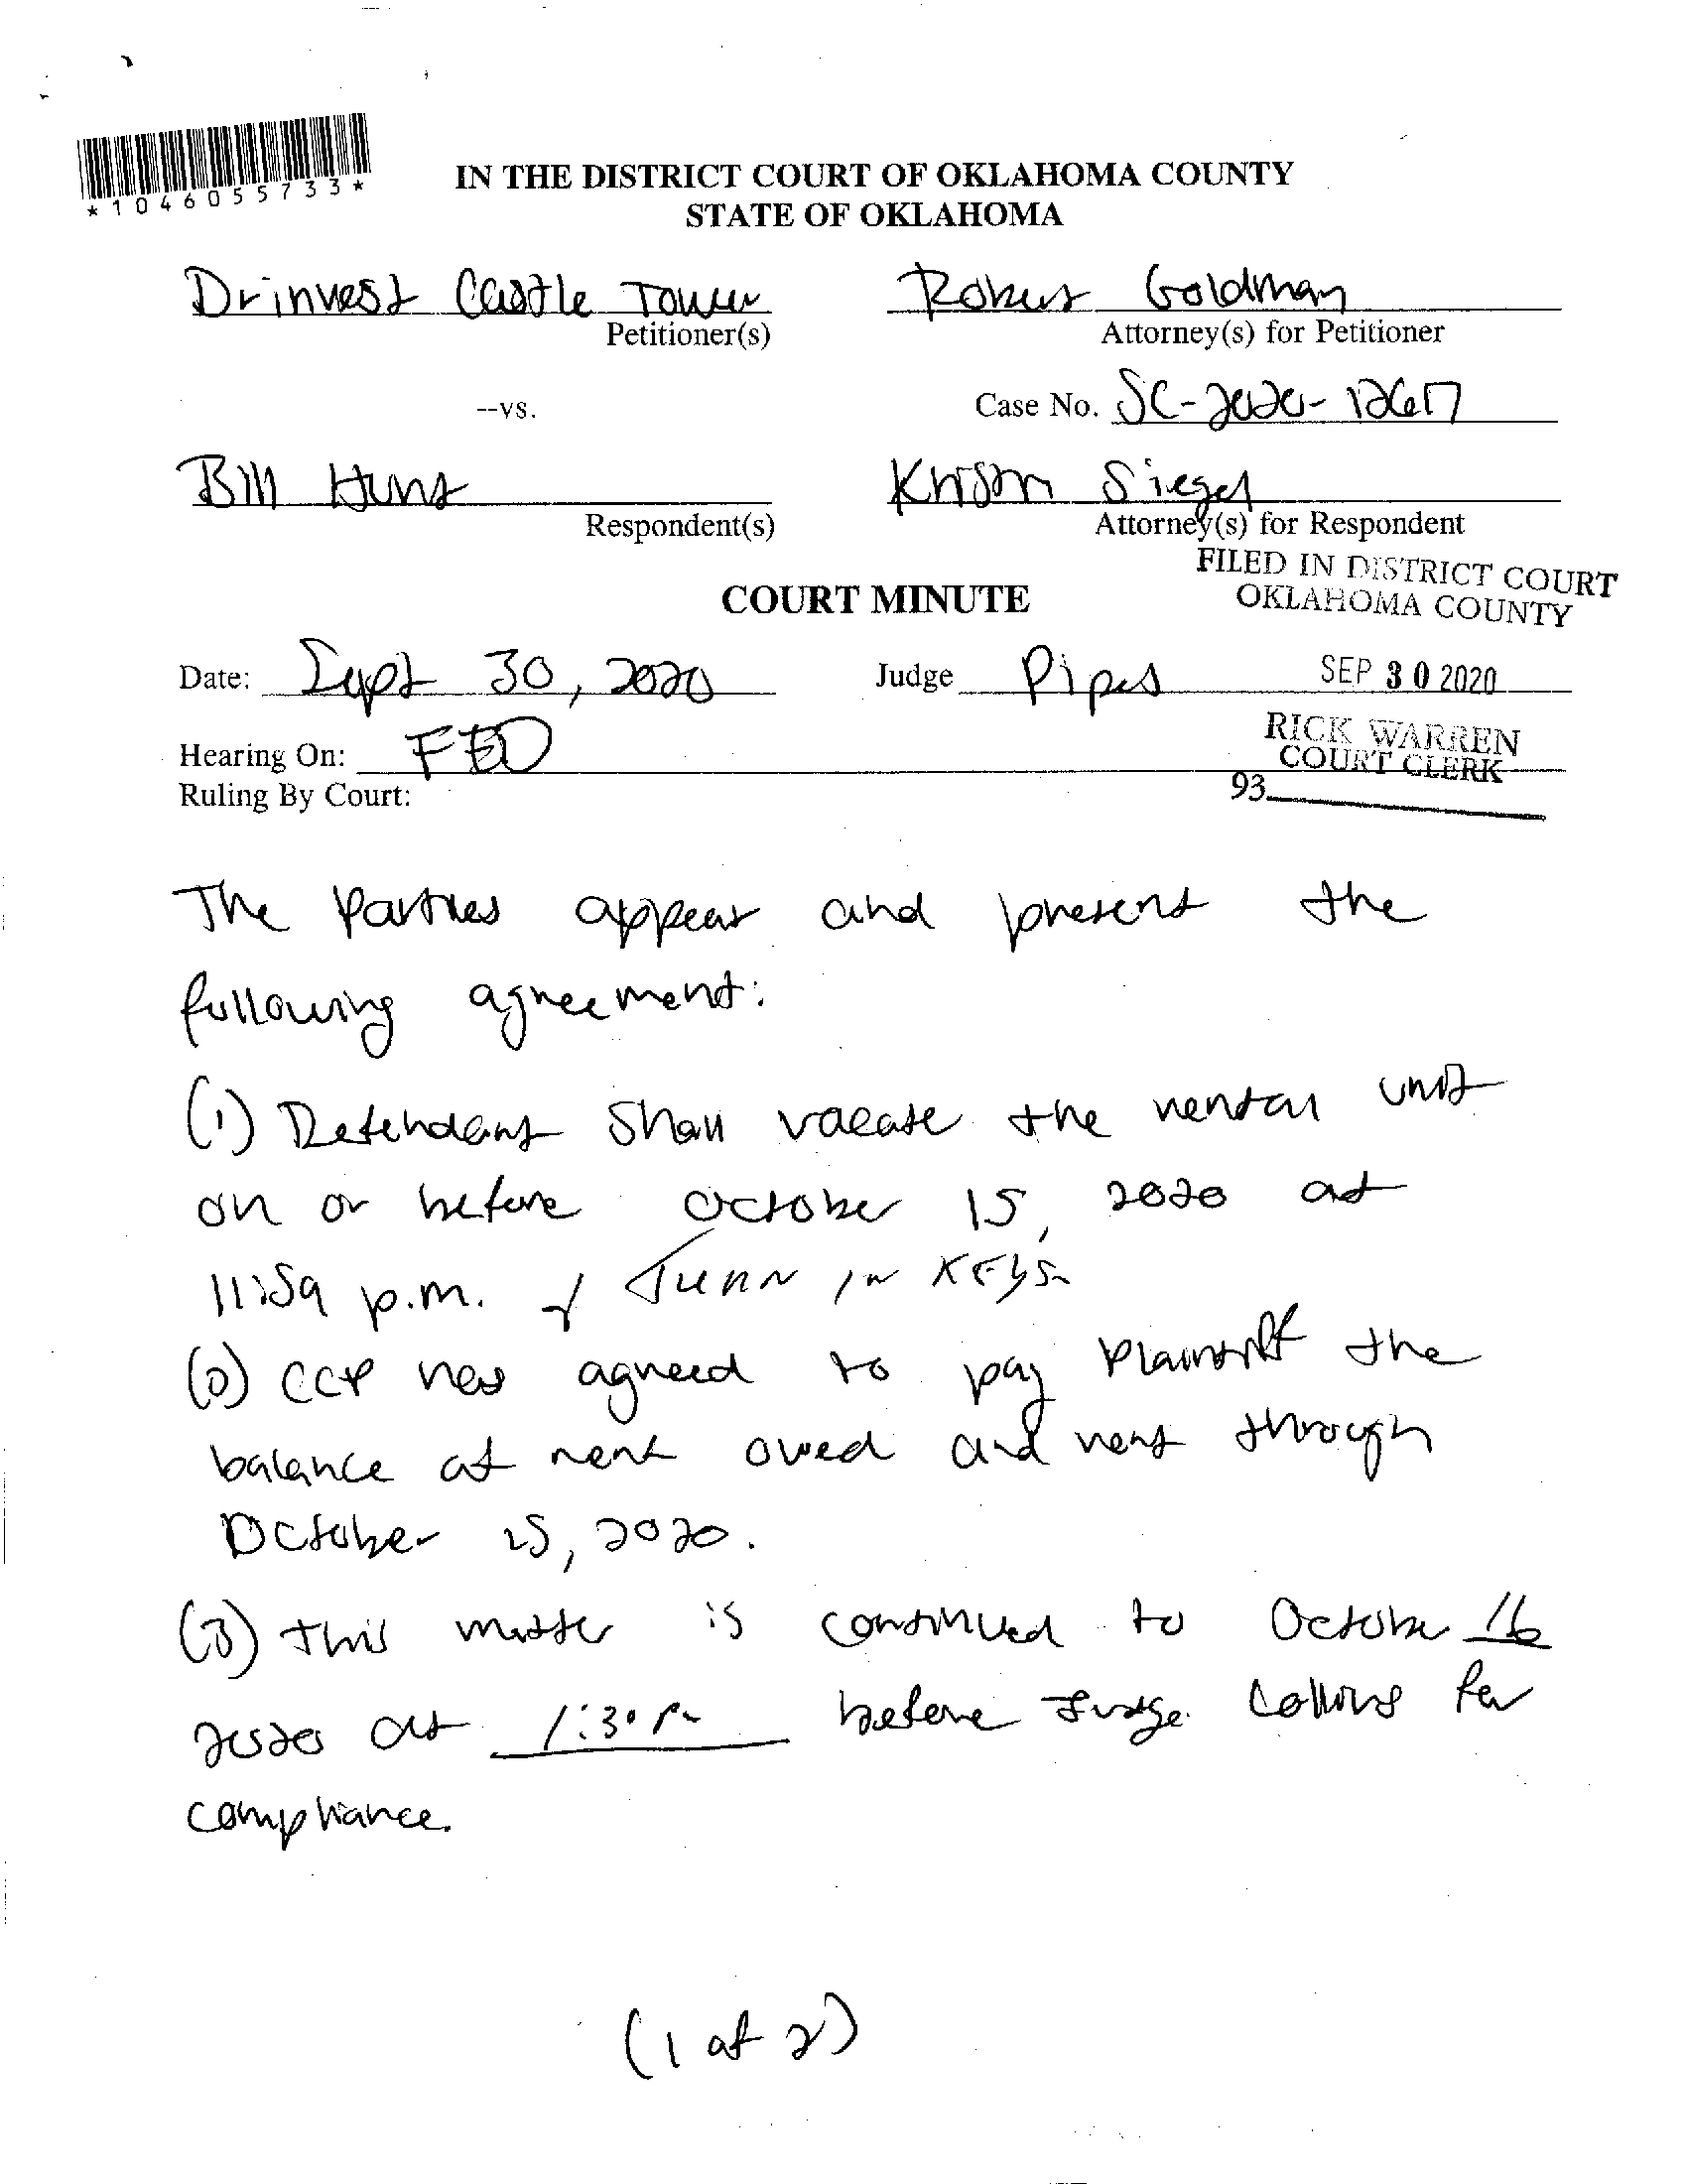 *1046055733*
IN THE DISTRICT COURT OF OKLAHOMA COUNTY
STATE OF OKLAHOMA
Drinvest Castle Tower
Petitioner(s)
Robert Goldman
Attorney(s) for Petitioner
--vs.
Case No. SC-2020-12617
Bill Hunt
Respondent(s)
Siegel
Attorney(s) for Respondent
FILED IN DISTRICT COURT
OKLAHOMA COUNTY
COURT MINUTE
Date: Sept 30, 2020
Judge Pipes
SEP 30 2020
Hearing On: FED
RICK WARREN
COURT CLERK
Ruling By Court:
93
The Parties appear and present the
following agreement:
(1) Defendant shall vacate the rental unit
on or before October 15, 2020 at
11:59 p.m. & Turn in KEYS.
(2) CCP has agreed to pay Plaintiff the
balance of rent owed and rent through
October 15, 2020.
(3) This matter is continued to October 16
2020 at 1:30 pm before Judge Collins for
compliance.
(1 of 2)